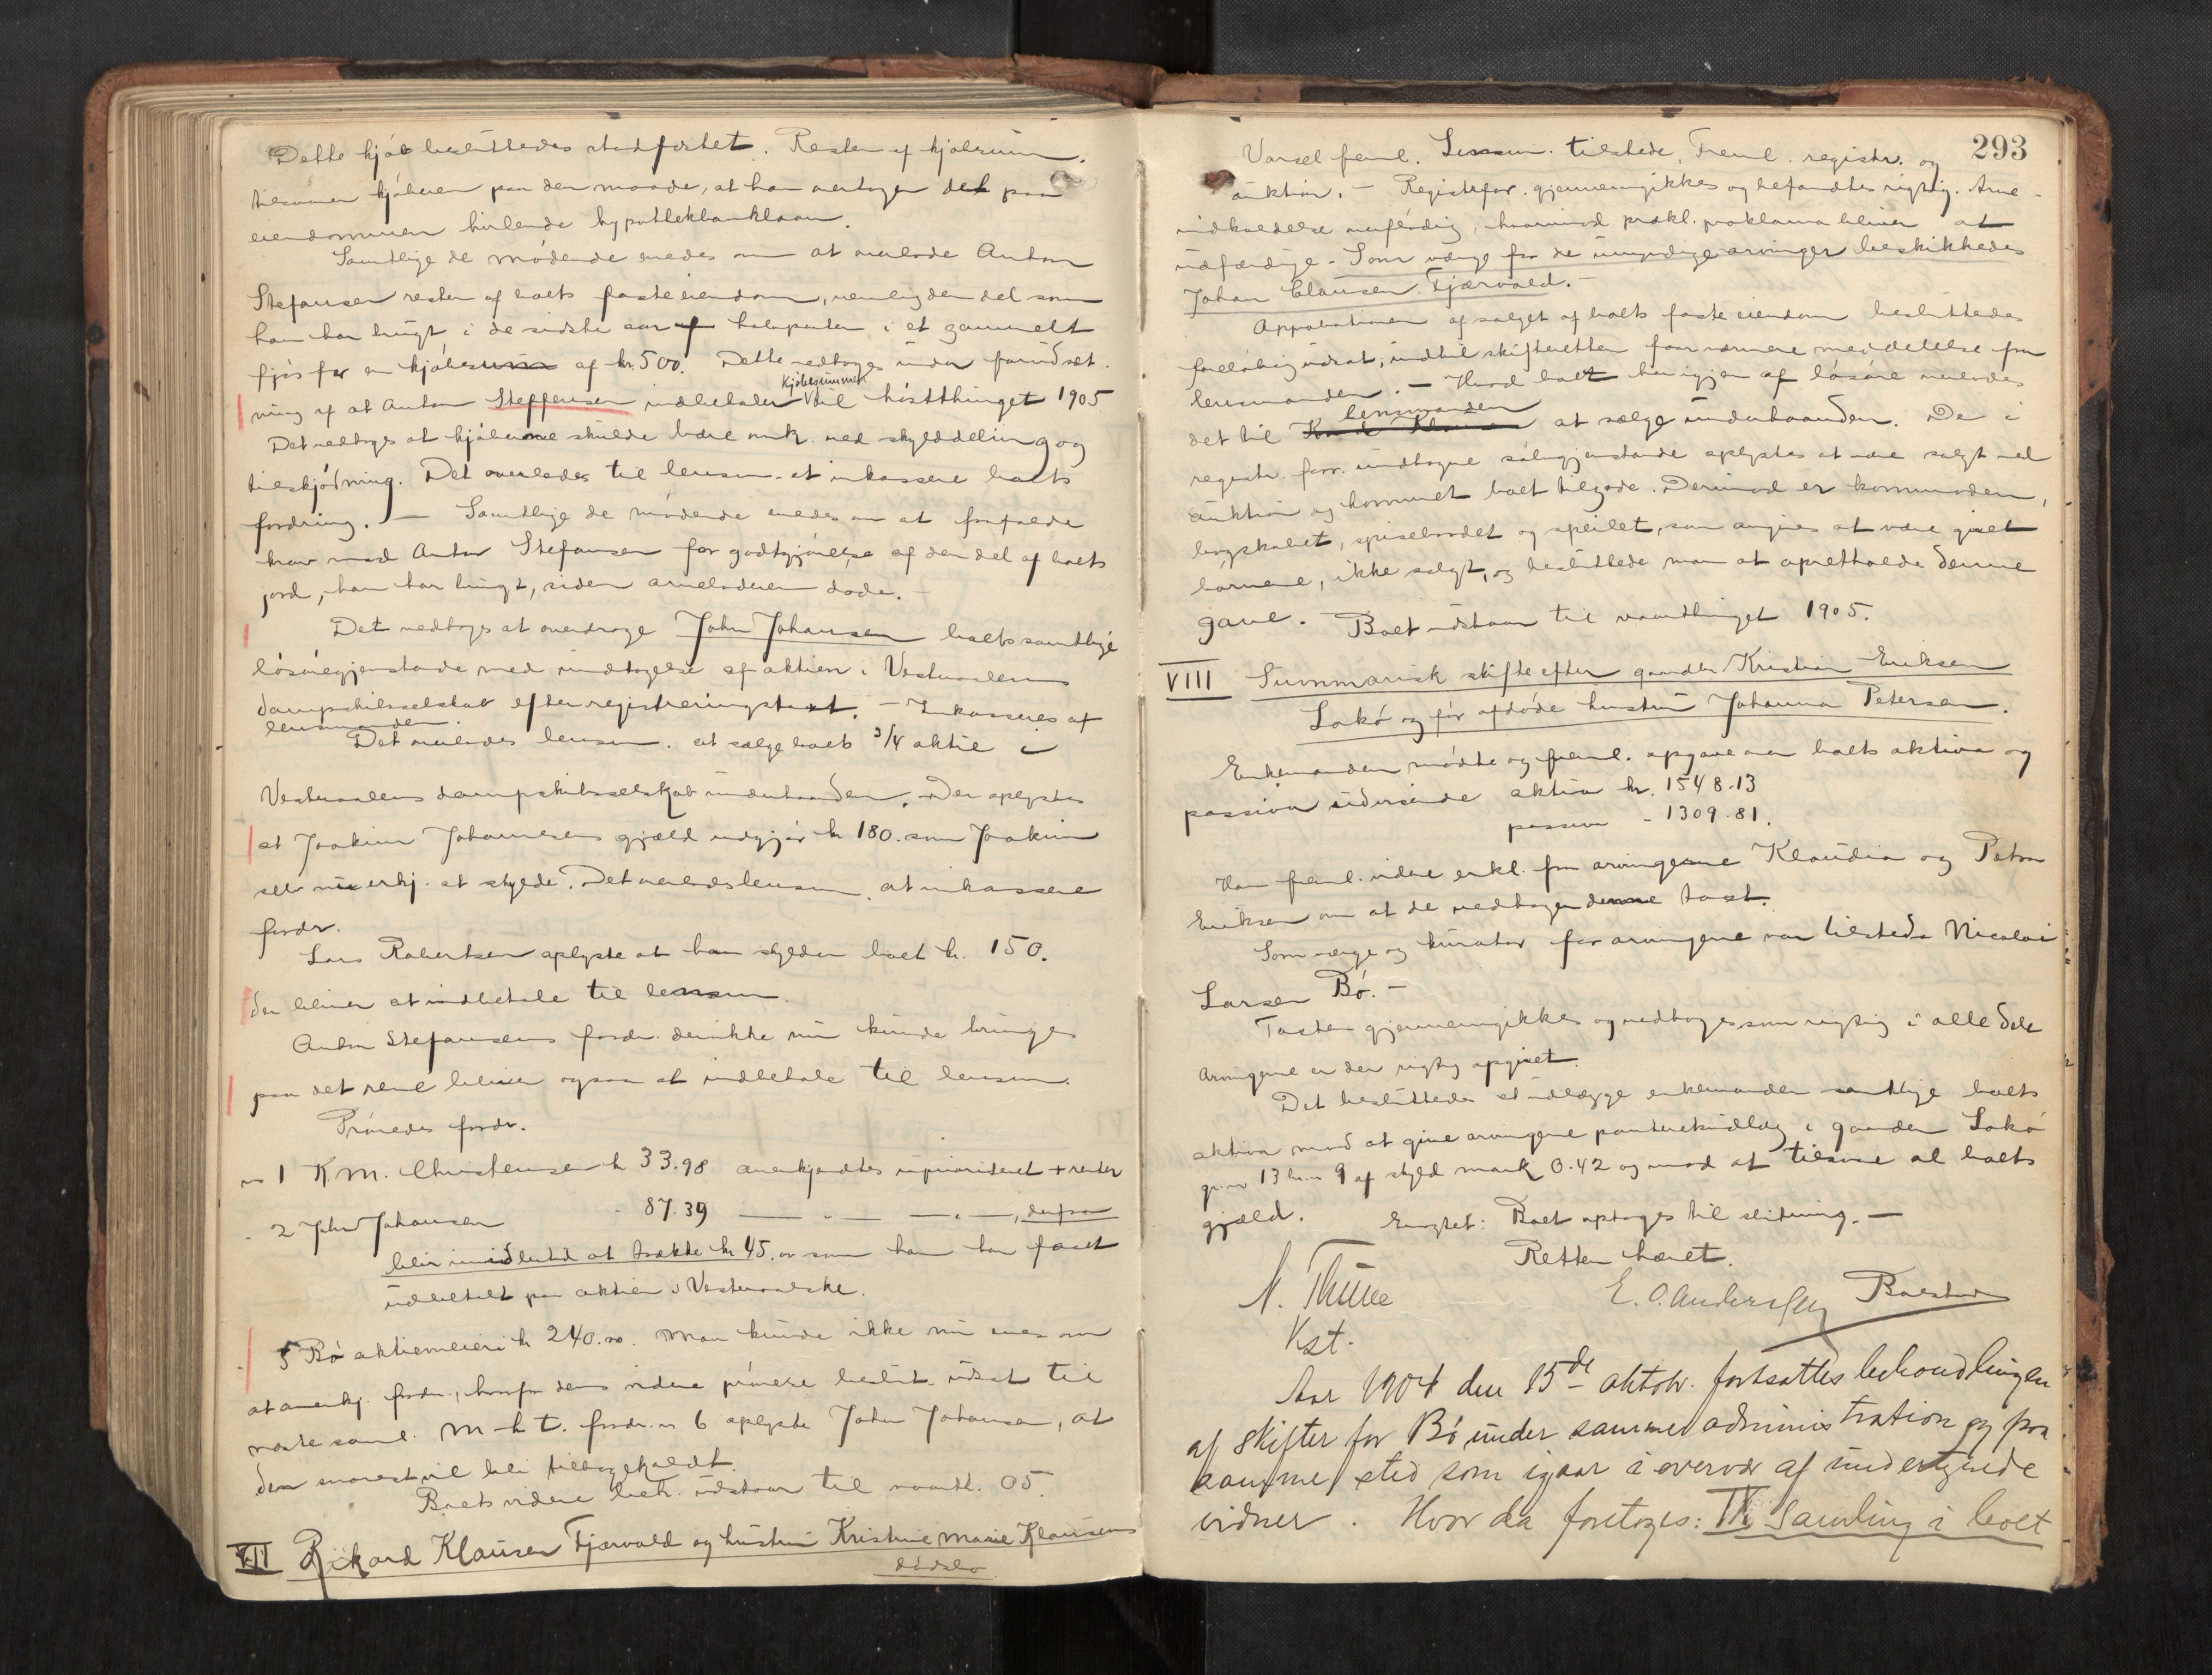 Dette kjøb besluttedes stadfæstet. Resten af kjøbesum.
tilsvarer kjøberen paa den maade, at han overtager det paa
eiendommen hvilende hypothekbanklaan.
Samtlige de mødende enedes om at overlade Anton
Stefansen resten af boets faste eiendom, nemlig den del som
han har brugt i de sidste aar halvparten i et gammelt
fjøs for en kjøbesum af kr. 500. Dette vedtoges under forudsæt-
ning af at Anton Steffensen indbetaler kjøbesummen til høstthinget 1905
Det vedtoges at kjøberne skulde bære omk. ved skylddeling og
tilskjødning. Det overlodes til lensm. at inkassere boets
fordring. — Samtlige de mødende enedes om at frafalde
krav mod Anton Stefansen for godtgjørelse af den del af boets
jord, han har brugt, siden arveladeren døde. —
Det vedtoges at overdrage John Johansen boets samtlige
løsøregjenstande med undtagelse af aktien i Vesteraalens
dampskibsselskab efter registreringstaxt. — Inkasseres af
lensmanden.
Det overlodes lensm. at sælge boets 3/4 aktie i
Vesteraalens dampskibsselskab underhaanden. Der oplystes
at Joakim Johannesens gjæld udgjør kr 180. som Joakim
selv nu erkj. at skylde. Det overlodes lensm. at inkassere
fordr.
Lars Robertsen oplyste at han skylder boet kr. 150.
der bliver at indbetale til lensm.
Anton Stefansens fordr. der ikke nu kunde bringes
paa det rene bliver ogsaa at indbetale til lensm.
Prøvedes fordr.
no 1 K M. Christensen kr 33.98 anerkjendtes uprioriteret + renter
- 2 John Johansen - 87.39 — " — — " —, derfra
blir imidlertid at trække kr 45.00 som han har faaet
udbetalt paa aktien i Vesteraalske.
- 5 Bø aktiemeieri kr 240.00. Man kunde ikke nu enes om
at anerkj. fordr., hvorfor dens videre prøvelse beslut. udsat til
næste saml. M-h t. fordr. no 6 oplyste John Johansen, at
den snarest vil bli tilbagekaldt.
Boets videre beh. udstaar til vaarth. 05.
VII Rikard Klausen Fjærvold og hustru Kristine Marie Klausens
dødsbo
293
Varsel freml. Lensm. tilstede. Freml. registr. og
auktion. — Registr.for. gjennemgikkes og befandtes rigtig. Arve-
indkaldelse overflødig, hvorimod prækl. proklama bliver at
udfærdige. Som værge for de umyndige arvinger beskikkedes
Johan Clausen Fjærvold. —
Approbationen af salget af boets faste eiendom besluttedes
foreløbig udsat, indtil skifteretten faar nærmere meddelelse fra
lensmanden. — Hvad boet har igjen af løsøre overlodes
det til lensmanden at sælge underhaanden. De i
registr. forr. undtagne sølvgjenstande oplystes at være solgt ved
auktion og kommet boet tilgode. Derimod er kommoden,
bogskabet, spisebordet og speilet, som angives at være givet
børnene, ikke solgt, og besluttede man at opretholde denne
gave. Boet udstaar til vaarthinget 1905.
VIII Summarisk skifte efter gaardbr. Kristian Eriksen
Lokø og før afdøde hustru Johanna Petersen.
Enkemanden mødte og freml. opgave over boets aktiva og
passiva udvisende aktiva kr. 1548.13
passiva - 1309.81.
Han freml. videre erkl. fra arvingerne Klaudia og Petra
Eriksen om at de vedtager denne taxt.
Som værge og kurator for arvingerne var tilstede Nicolai
Larsen Bø. —
Taxten gjennemgikkes og vedtoges som rigtig i alle dele
Arvingerne er der rigtig opgivet.
Det besluttedes at udlægge enkemanden samtlige boets
aktiva mod at give arvingerne panteretudlæg i gaarden Lokø
gr. no 13 br. no 9 af skyld mark 0.42 og mod at tilsvare al boets
gjæld. Eragtet: Boet optages til slutning. —
Retten hævet.
N. Thüve E. O. Andersen
Kst.
Aar 1904 den 15de oktobr. fortsattes behandlingen
af skifter for Bø under samme administration og paa
samme sted som igaar i overvær af undertegnede
vidner. Hvor da foretoges: IX Samling i boet